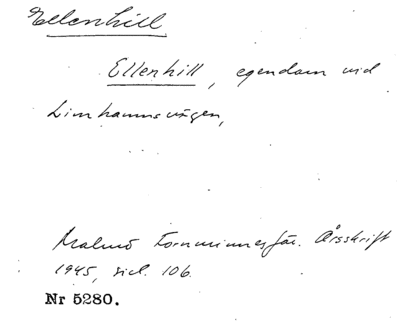 Ellenhill.
Ellenhill, egendom vid
Limhamnsvägen,
Malmö Fornminnesför. Årsskrift
1945, sid. 106.
Nr 5280.